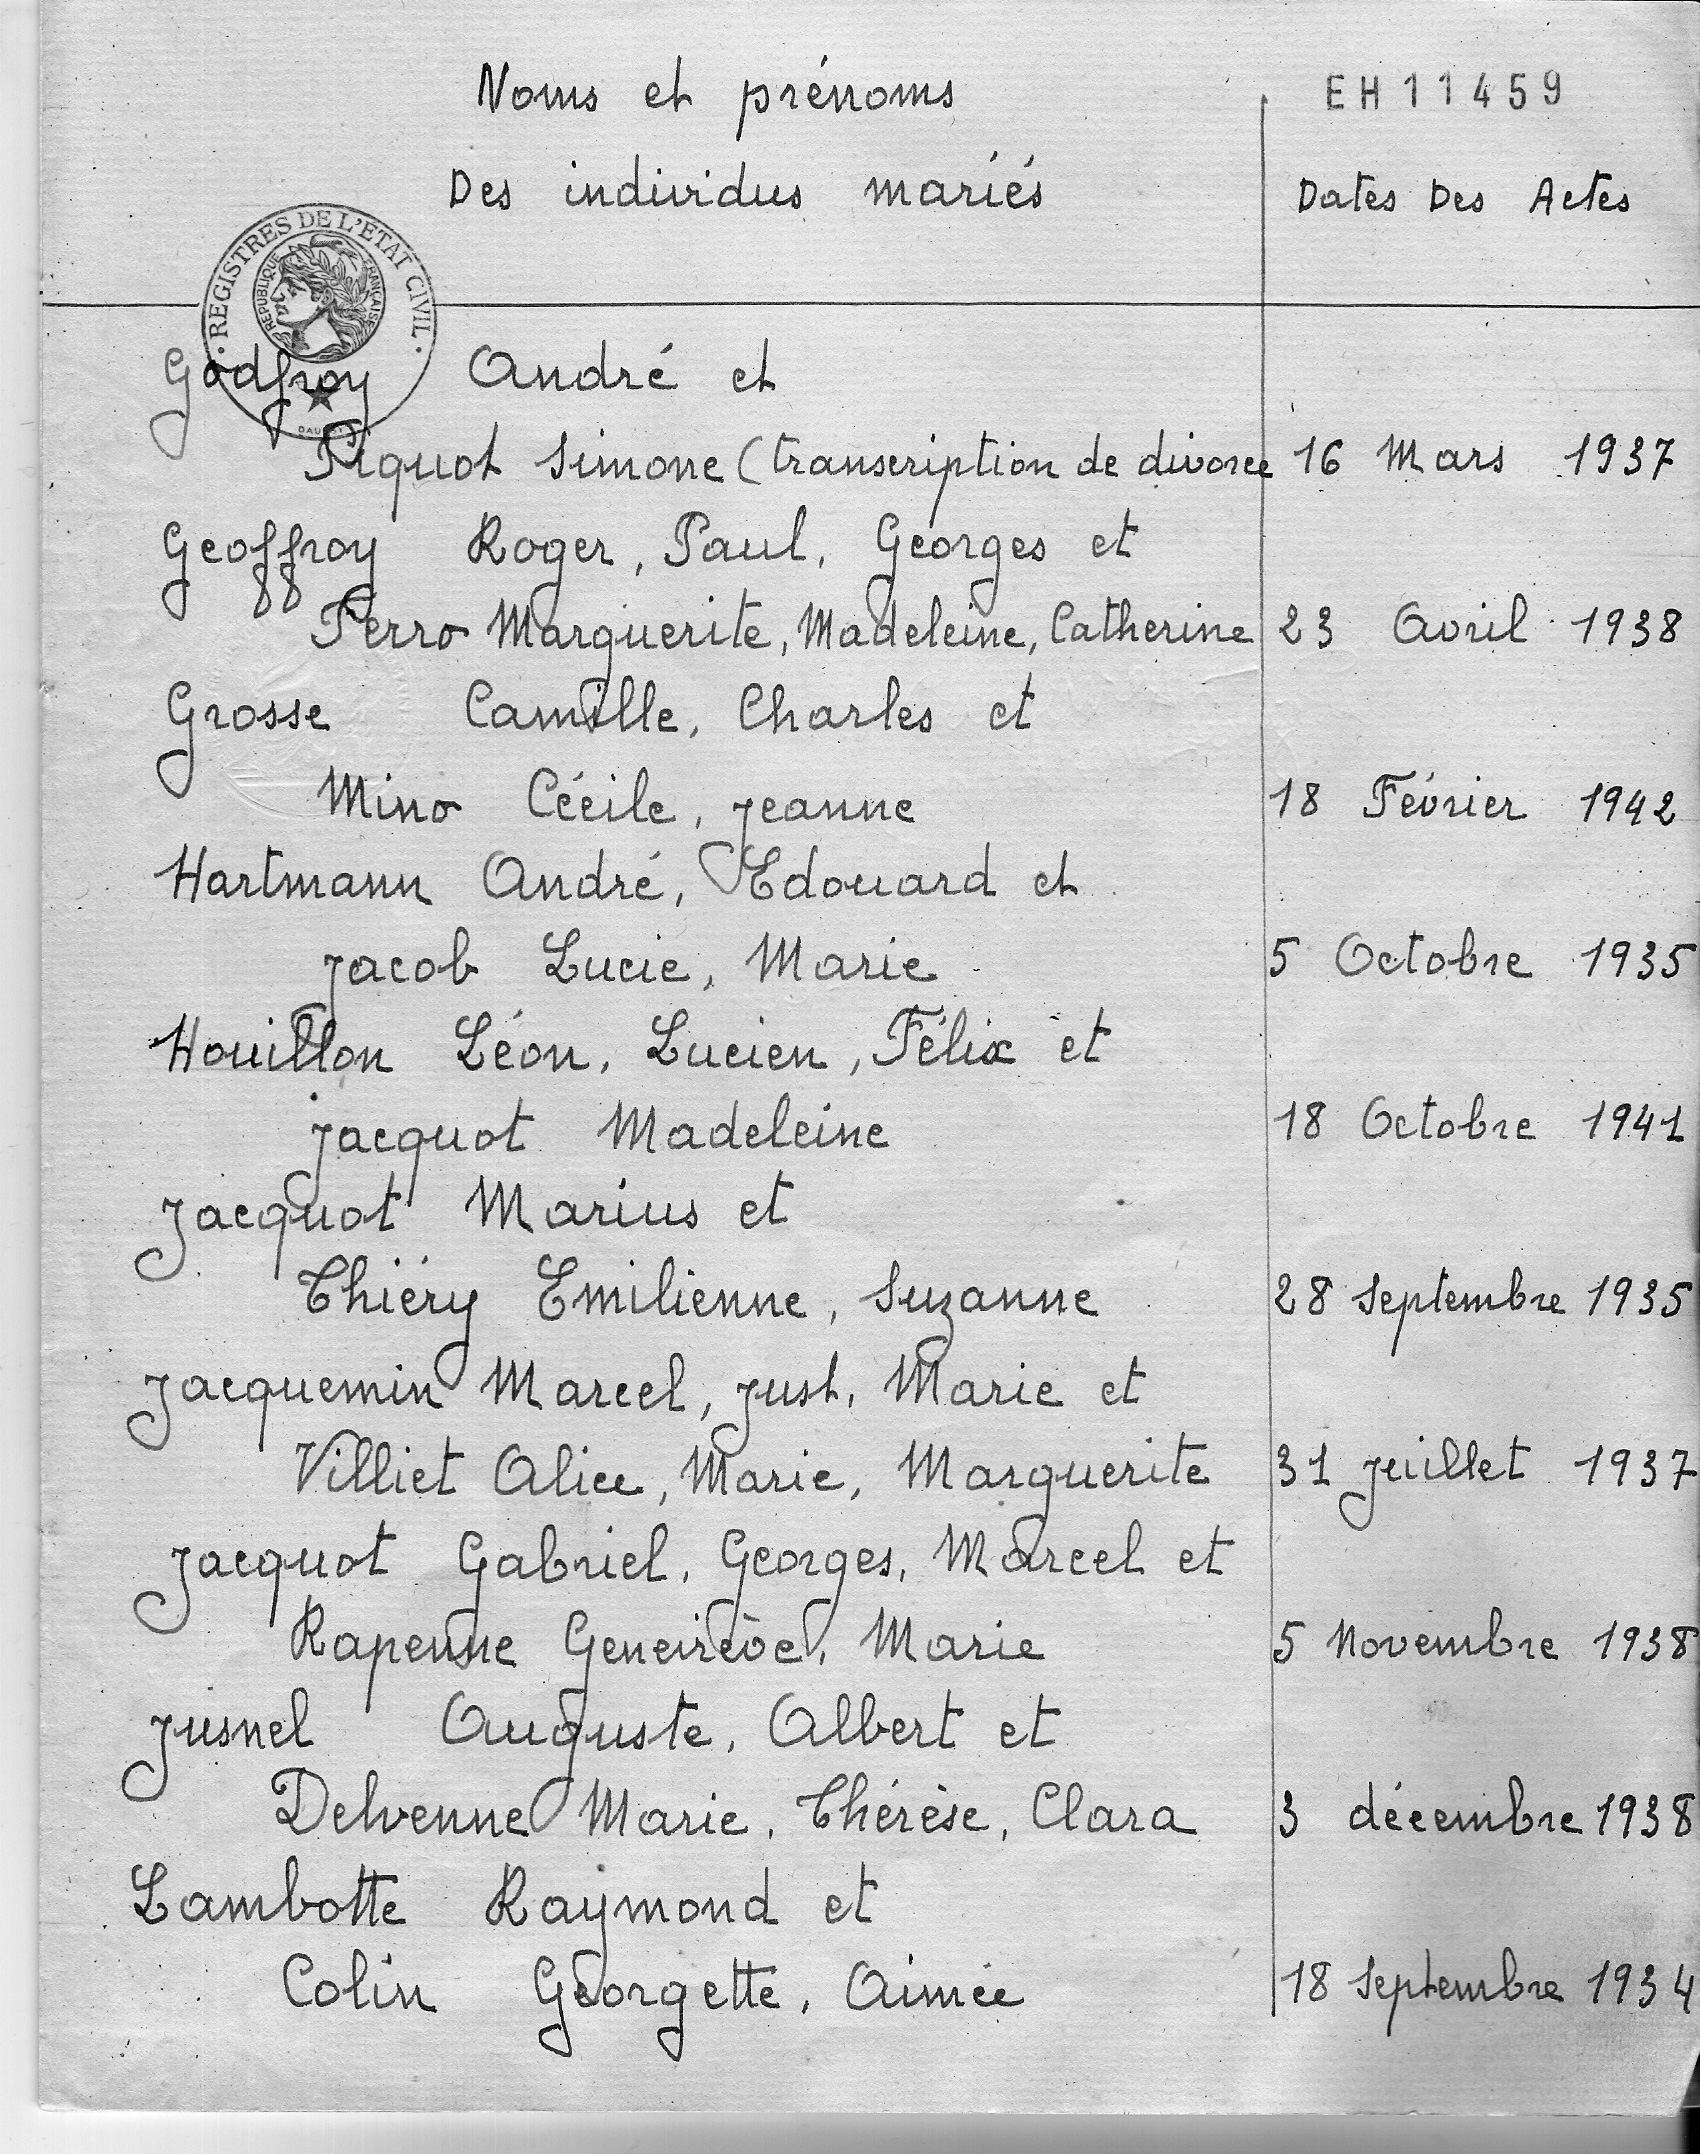 Noms et prénoms
EH11459
Des individus mariés
Dates Des Actes
REGISTRES DE L'ETAT CIVIL
REPUBLIQUE FRANÇAISE
Godfroy André et
Piquot Simone (transcription de divorce 16 Mars 1937
Geoffroy Roger, Paul, Georges et
Perro Marguerite, Madeleine, Catherine 23 Avril 1938
Grosse Camille, Charles et
Mino Cécile, Jeanne 18 Février 1942
Hartmann André, Edouard et
Jacob Lucie, Marie 5 Octobre 1935
Houillon Léon, Lucien, Félix et
Jacquot Madeleine 18 Octobre 1941
Jacquot Marius et
Thiéry Emilienne, Suzanne 28 Septembre 1935
Jacquemin Marcel, Just, Marie et
Villiet Alice, Marie, Marguerite 31 Juillet 1937
Jacquot Gabriel, Georges, Marcel et
Rapenne Geneviève, Marie 5 Novembre 1938
Jusnel Auguste, Albert et
Delvenne Marie, Thérèse, Clara 3 décembre 1938
Lambotte Raymond et
Colin Georgette, Aimée 18 Septembre 1934